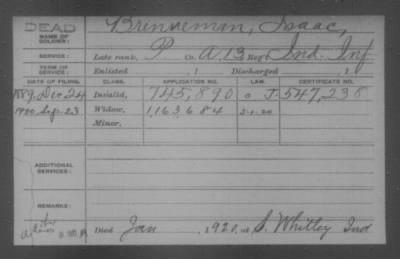 DEAD
NAME OF SOLDIER: Brenneman, Isaac,
SERVICE: Late rank, P Co. A, 13 Reg't Ind. Inf.
TERM OF SERVICE: Enlisted , 1 Discharged , 1
DATE OF FILING. CLASS. APPLICATION NO. LAW. CERTIFICATE NO.
Dec 24 Invalid, 745,890 J. 547,238
1920 Sep. 23 Widow, 1,163,684
Minor,
ADDITIONAL SERVICES:
REMARKS:
Died Jan 1920, at S. Whitley Ind